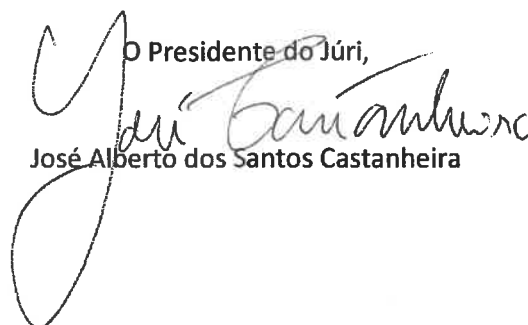 O Presidente do Júri,
José Castanheira
José Alberto dos Santos Castanheira